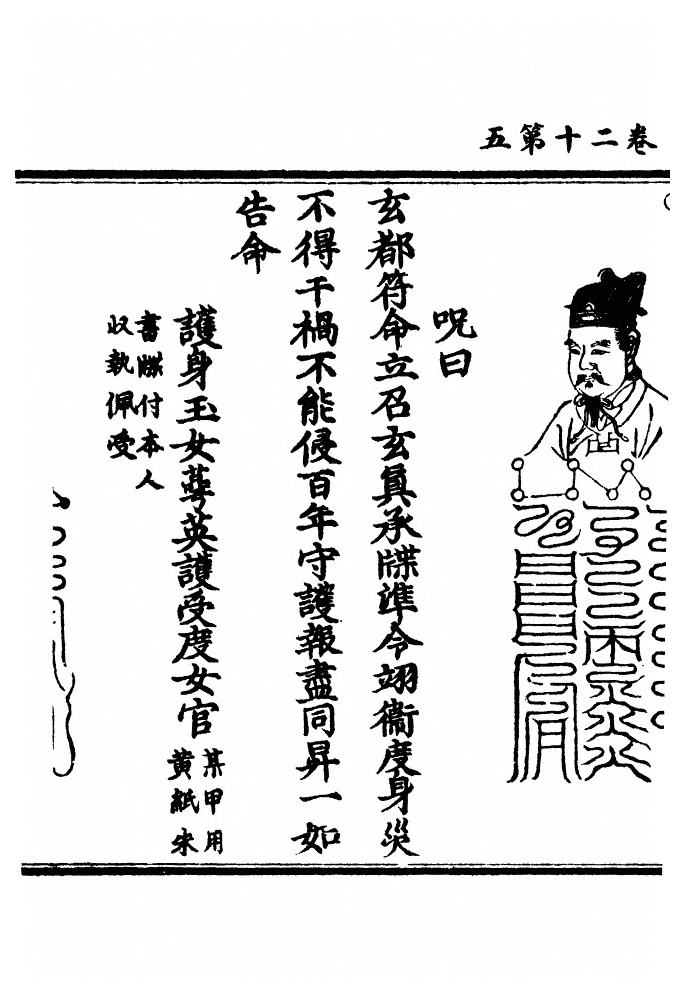 卷二十第五
呪曰
玄都符命立召玄眞承牒準令翊衞度身災
不得干禍不能侵百年守護報盡同昇一如
告命
護身玉女蕚英護受度女官
某甲用
黄紙朱
書牒付本人
収執佩受